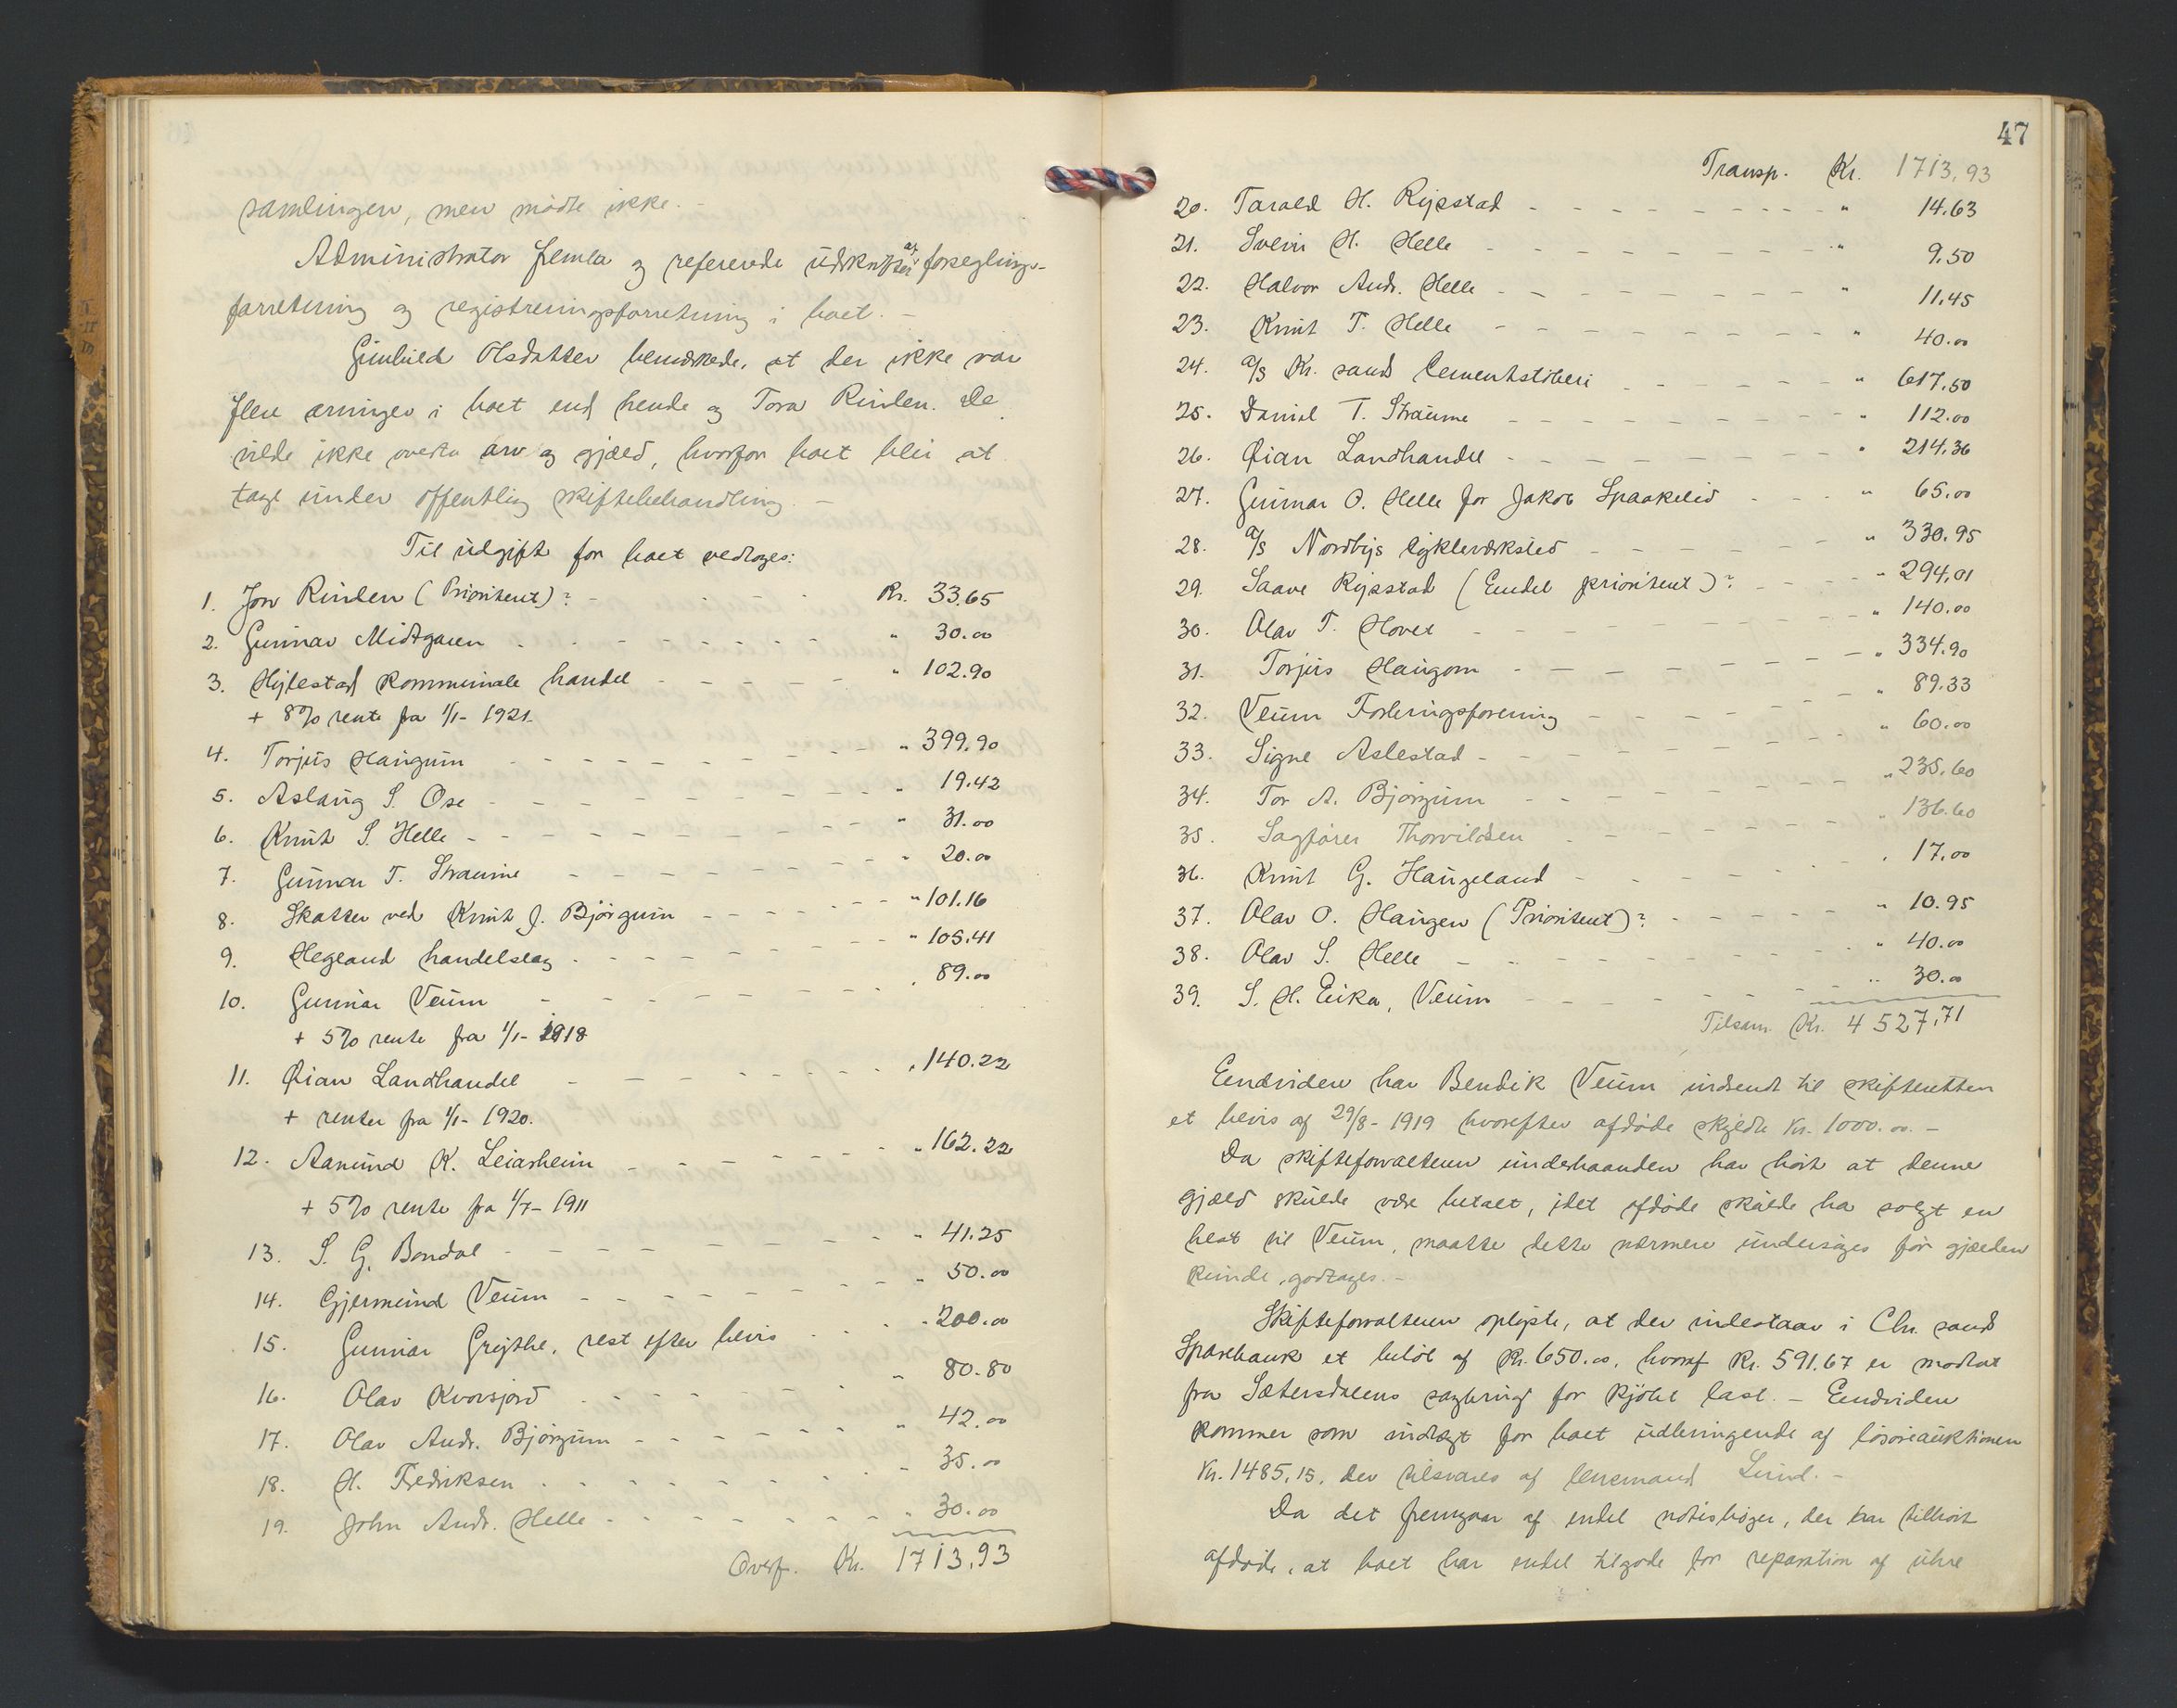 samlingen, men mødte ikke. -
Administrator femla og refererede udskrifter af foreglings-
forretning og registreringsforretning i boet. -
Gunhild Olsdatter bemærkede, at der ikke var
flere arvinger i boet end hende og Tora Rinlen. De
vilde ikke overta arv og gjæld, hvorfor boet blir at
tage under offentlig skiftebehandling. -
Til udgift for boet vedtoges:
1. Jon Rinlen (Prioritent)? - Kr. 33.65
2. Gunnar Midtgaren " 30.00
3. Hylestad Kommunale handel " 102.90
+ 8% rente fra 1/1- 1921.
4. Torjus Haugum " 399.90
5. Aslaug S. Ose " 19.42
6. Knut S. Helle " 31.00
7. Gunnar T. Straume " 20.00
8. Skatter ved Knut J. Bjørgum " 101.16
9. Hegland handelslag " 105.41
10. Gunnar Veum " 89.00
+ 5% rente fra 1/1- 1918
11. Øian Landhandel " 140.22
+ renter fra 1/1- 1920.
12. Aanund K. Leiarheim " 162.22
+ 5% rente fra 1/7- 1911
13. S. G. Bondal " 41.25
14. Gjermund Veum " 50.00
15. Gunnar Grythe, rest efter bevis " 200.00
16. Olav Kvorsjord " 80.80
17. Olav Andr. Bjørgum " 42.00
18. H. Fredriksen " 35.00
19. John Andr. Helle " 30.00
Overf. Kr. 1713,93
47
Transp. Kr. 1713,93
20. Tarald H. Rysstad " 14.63
21. Svein H. Helle " 9.50
22. Halvor Andr. Helle " 11.45
23. Knut T. Helle " 40.00
24. a/s Kr. sands Cementstøberi " 617.50
25. Daniel T. Straume " 112.00
26. Øian Landhandel " 214.36
27. Gunnar O. Helle for Jakob Spaakelid " 65.00
28. a/s Nordbys Cykleværksted " 330.95
29. Saave Rysstad (Endel prioritent)? " 294,01
30. Olav T. Hovet " 140.00
31. Torjus Haugom " 334.90
32. Veum Forleringsforening " 89.33
33. Signe Aslestad " 60.00
34. Tor A. Bjørgum " 235.60
35. Sagfører Thorvildsen " 136.60
36. Knut G. Haugeland " 17.00
37. Olav O. Haugen (Prioritent)? " 10.95
38. Olav S. Helle " 40.00
39. S. H. Eika, Veum " 30.00
Tilsam. Kr. 4527,71
Endvidere har Bendik Veum indsendt til skifteretten
et bevis af 29/8- 1919 hvorefter afdøde skyldte Kr. 1000.00. -
Da skifteforvalteren underhaanden har hørt at denne
gjæld skulde være betalt, idet afdøde skulde ha solgt en
hest til Veum, maatte dette nærmere undersøges før gjælden
kunde godtages. -
Skifteforvalteren oplyste, at der indestaar i Chr. sands
Sparebank et beløb af Kr. 650.00, hvoraf Kr. 591.67 er modtat
fra Sætersdalens sagbrug for kjøbt last. - Endvidere
kommer som indtægt for boet udbringende af løsøreauktionen
Kr. 1485,15, der tilsvares af lensmand Lund. -
Da det fremgaar af endel notisbøger, der har tilhørt
afdøde, at boet har endel tilgode for reparation af uhre